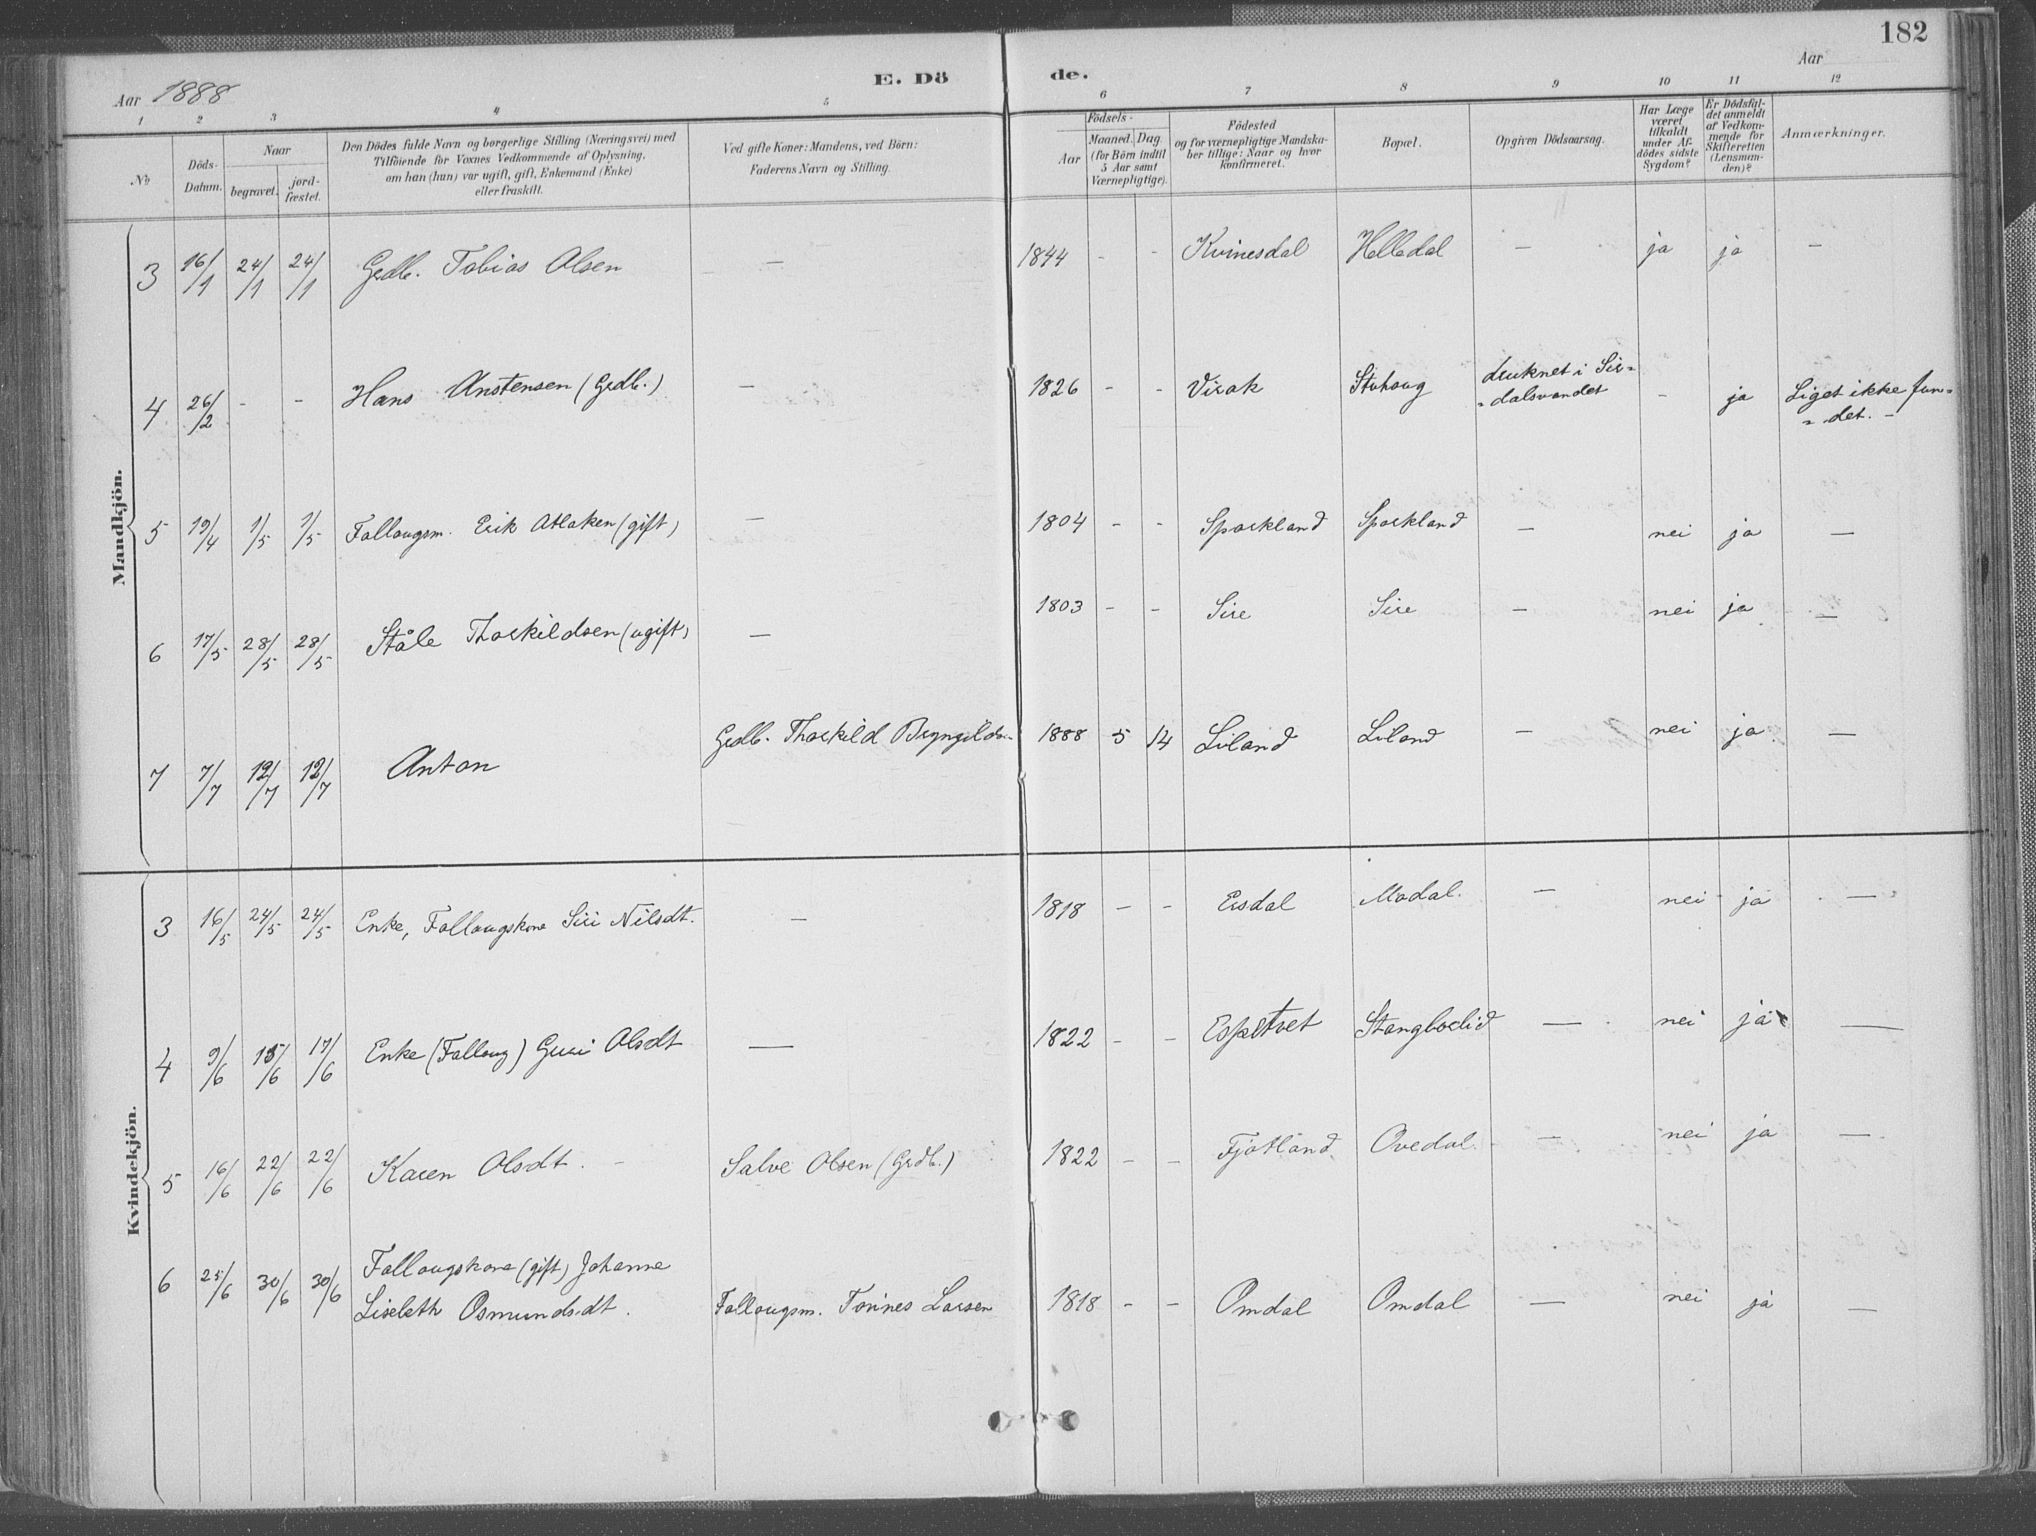 182
Aar 1888
E. Dö de.
Aar
1 2 3 4 5 6 7 8 9 10 11 12
No
Döds-Datum.
Naar
begravet.
jord-fæstet.
Den Dödes fulde Navn og borgerlige Stilling (Næringsvei) med
Tilföiende for Voxnes Vedkommende af Oplysning,
om han (hun) var ugift, gift, Enkemand (Enke)
eller fraskilt.
Ved gifte Koner: Mandens, ved Börn:
Faderens Navn og Stilling.
Födsels-
Aar
Maaned. Dag
(for Börn indtil
5 Aar samt
Værnepligtige).
Födested
og for værnepligtige Mandska-
ber tillige: Naar og hvor
konfirmeret.
Bopæl.
Opgiven Dödsaarsag.
Har Læge
været
tilkaldt
under Af-
dödes sidste
Sygdom?
Er Dödsfal-
det anmeldt
af Vedkom-
mende for
Skifteretten
(Lensman-
den)?
Anmærkninger.
Mandkjön.
3 16/1 24/1 24/1 Grdb. Tobias Olsen — 1844 - - Kvinesdal Helledal — ja ja —
4 26/2 - - Hans Anstensen (Grdb.) — 1826 - - Virak Stuhaug druknet i Sir-
-dalsvandet - ja Liget ikke fun-
-det. -
5 19/4 1/5 1/5 Follaugsm. Erik Atlaksen (gift) — 1804 - - Sporkland Sporkland — nei ja —
6 17/5 28/5 28/5 Ståle Thorkildsen (ugift) — 1803 - - Sire Sire — nei ja —
7 7/7 12/7 12/7 Anton Grdb. Thorkild Bryngilds. 1888 5 14 Liland Liland — nei ja —
Kvindekjön.
3 16/5 24/5 24/5 Enke, Follaugskone Siri Nilsdt. — 1818 - - Ersdal Modal. — nei ja —
4 9/6 15/6 17/6 Enke (Follaug) Guri Olsdt — 1822 - - Espetvet Stangborlid — nei ja —
5 16/6 22/6 22/6 Karen Olsdt. Salve Olsen (Grdb.) 1822 - - Fjotland Ovedal. — nei ja —
6 25/6 30/6 30/6 Follaugskone (gift) Johanne
Liseleth Osmundsdt. Follaugsm. Tønnes Larsen 1818 - - Omdal Omdal — nei ja —